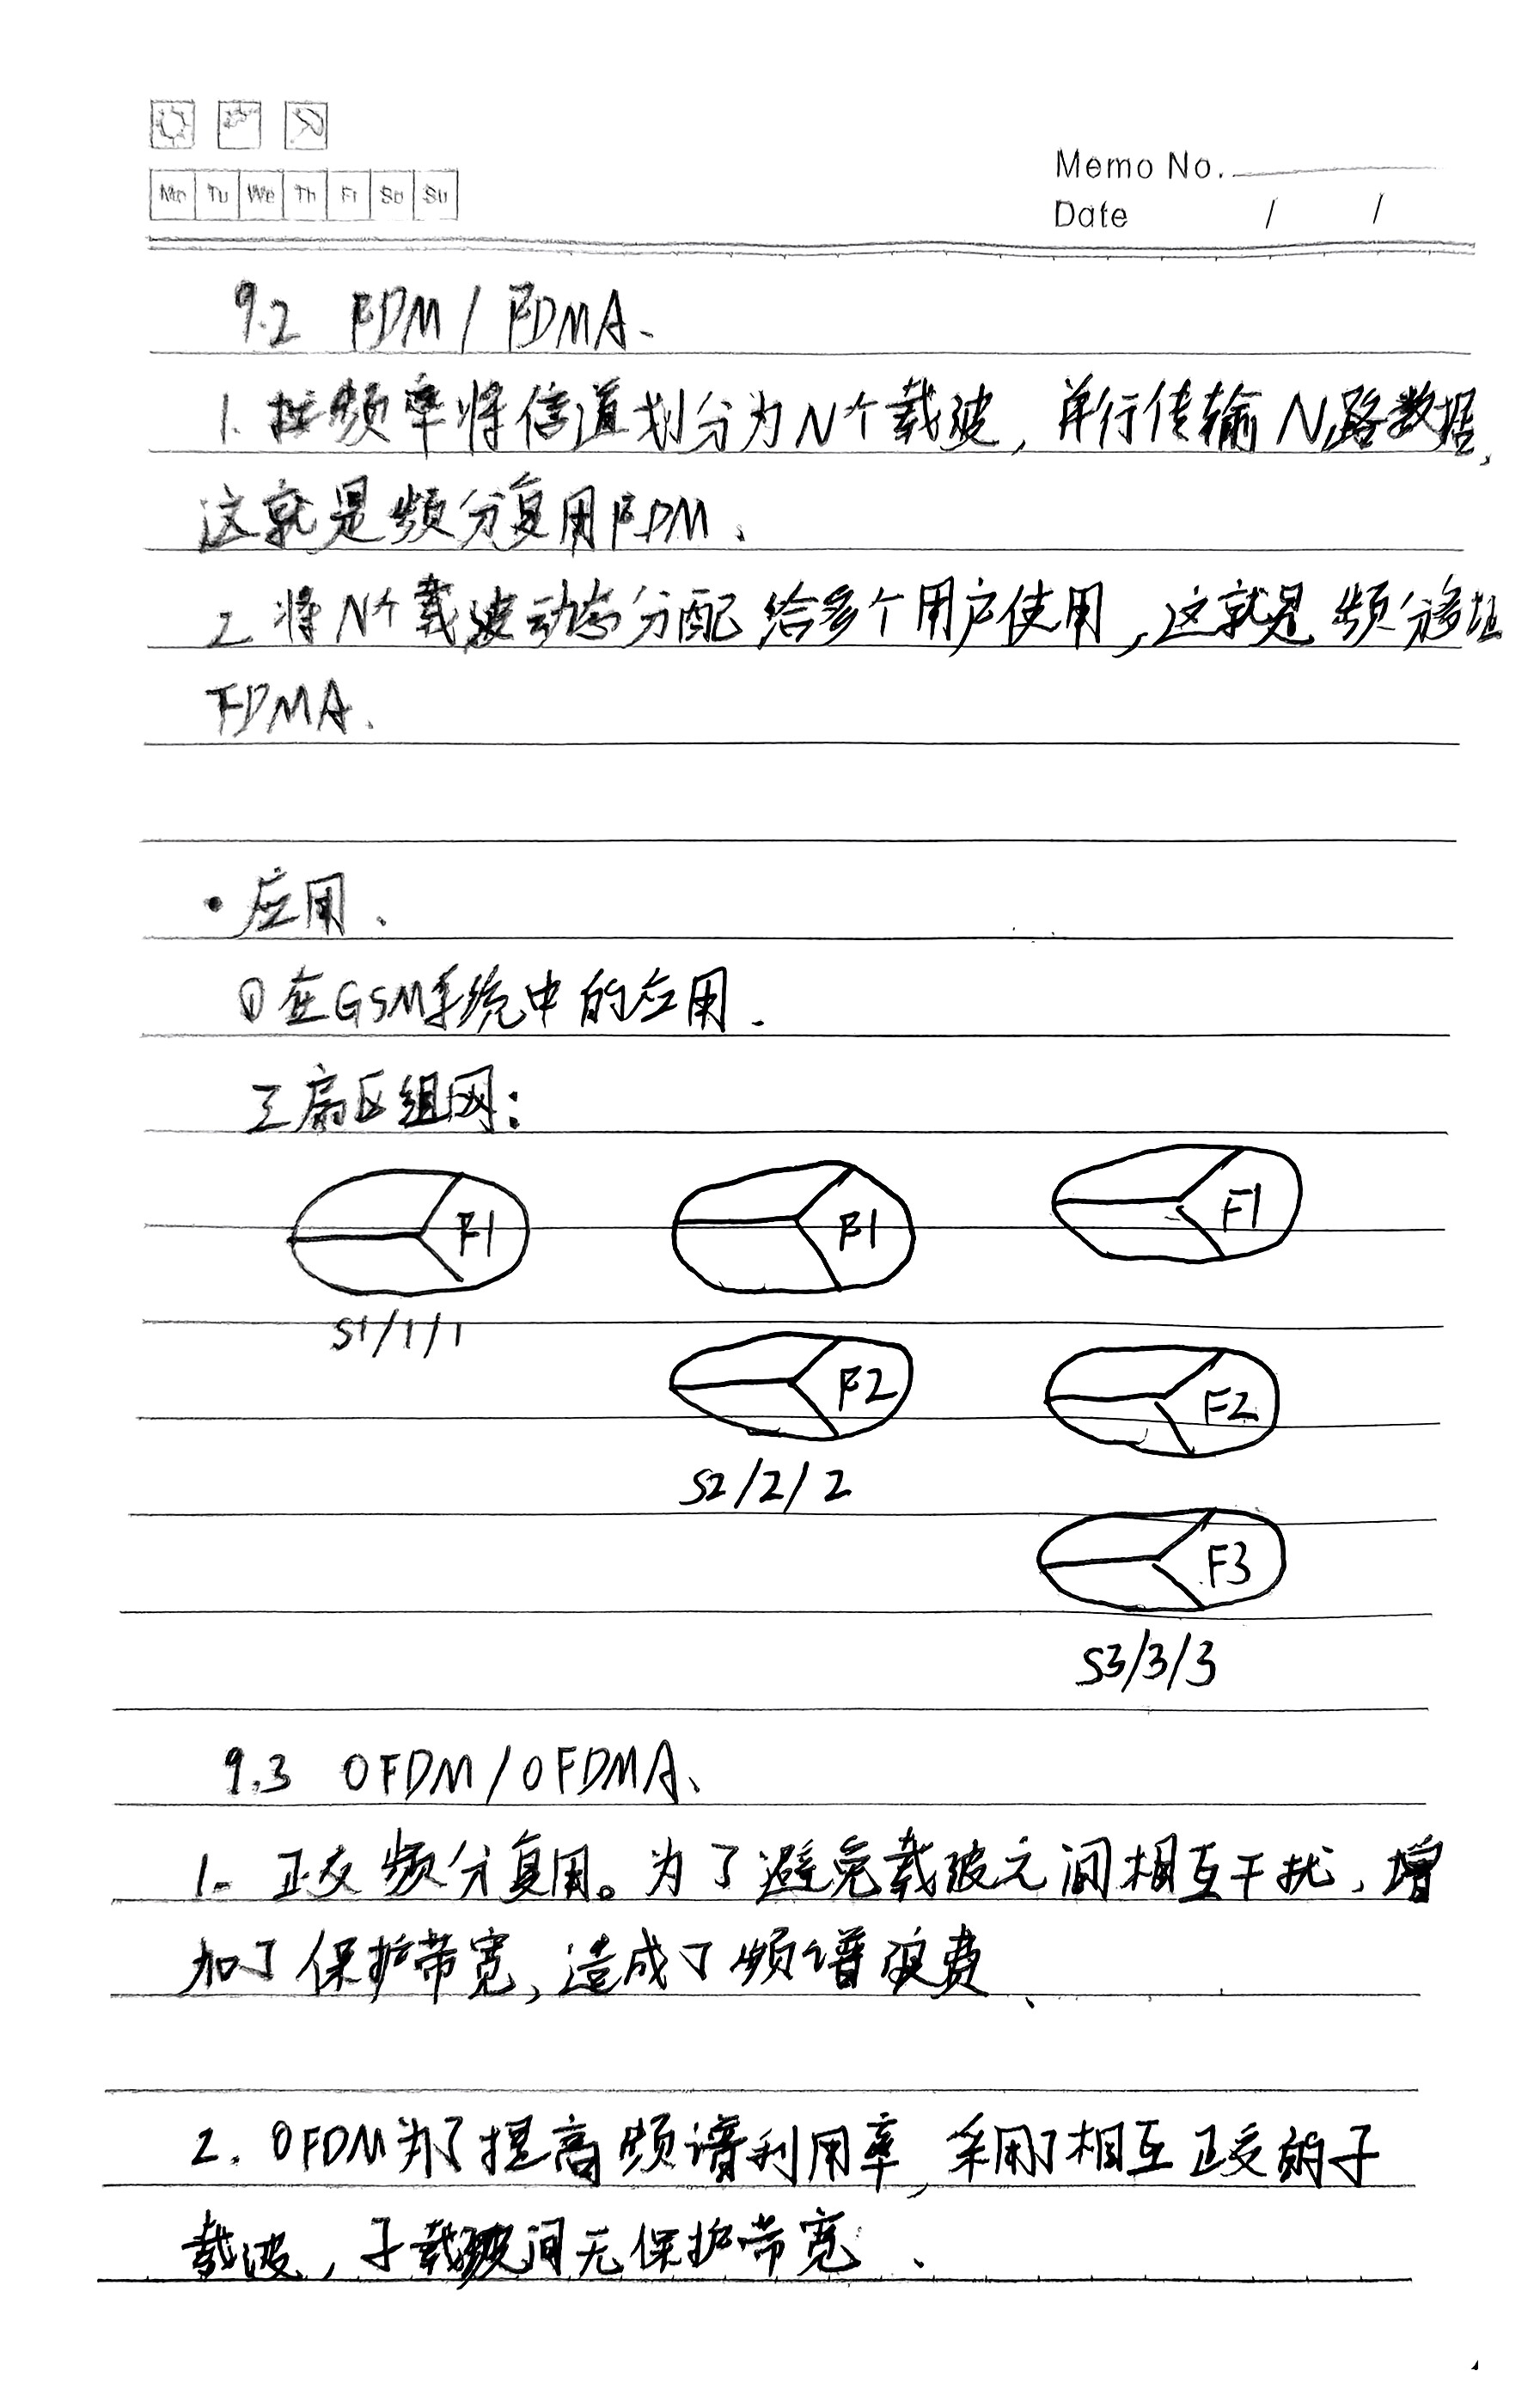 Mo Tu We Th Fr Sa Su
Memo No.
Date / /
9.2 FDM / FDMA、
1. 按频率将信道划分为N个载波，并行传输N路数据，
这就是频分复用FDM、
2 将N个载波动态分配给多个用户使用，这就是频分多址
FDMA.
· 应用、
① 在GSM系统中的应用.
三扇区组网：
F1 F1 F1
S1/1/1
F2 F2
S2/2/2
F3
S3/3/3
9.3 OFDM/OFDMA、
1. 正交频分复用。为了避免载波之间相互干扰、增
加了保护带宽，造成了频谱浪费、
2. OFDM为了提高频谱利用率，采用了相互正交的子
载波，子载波间无保护带宽、